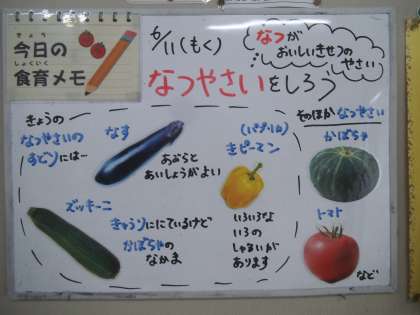 きょう
今日の
しょくいく
食育メモ
6/11(もく)
なつが
おいしいきせつの
やさい
なつやさいをしろう
きょうの
なつやさいの
すどりには…
なす
あぶらと
あいしょうがよい
(パプリカ)
きピーマン
いろいろな
いろの
しゅるいが
あります
ズッキーニ
きゅうりににているけど
かぼちゃの
なかま
そのほかなつやさい
かぼちゃ
トマト
など